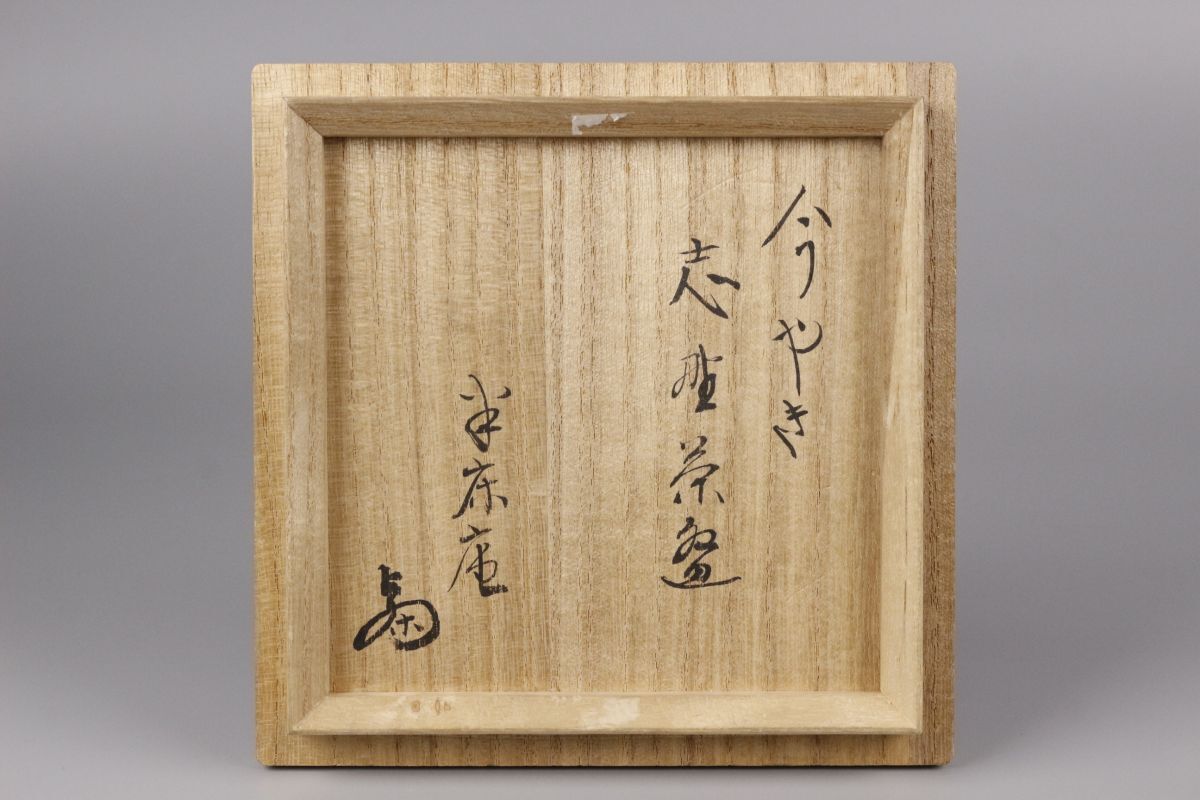 今やき
志野茶盌
半床庵